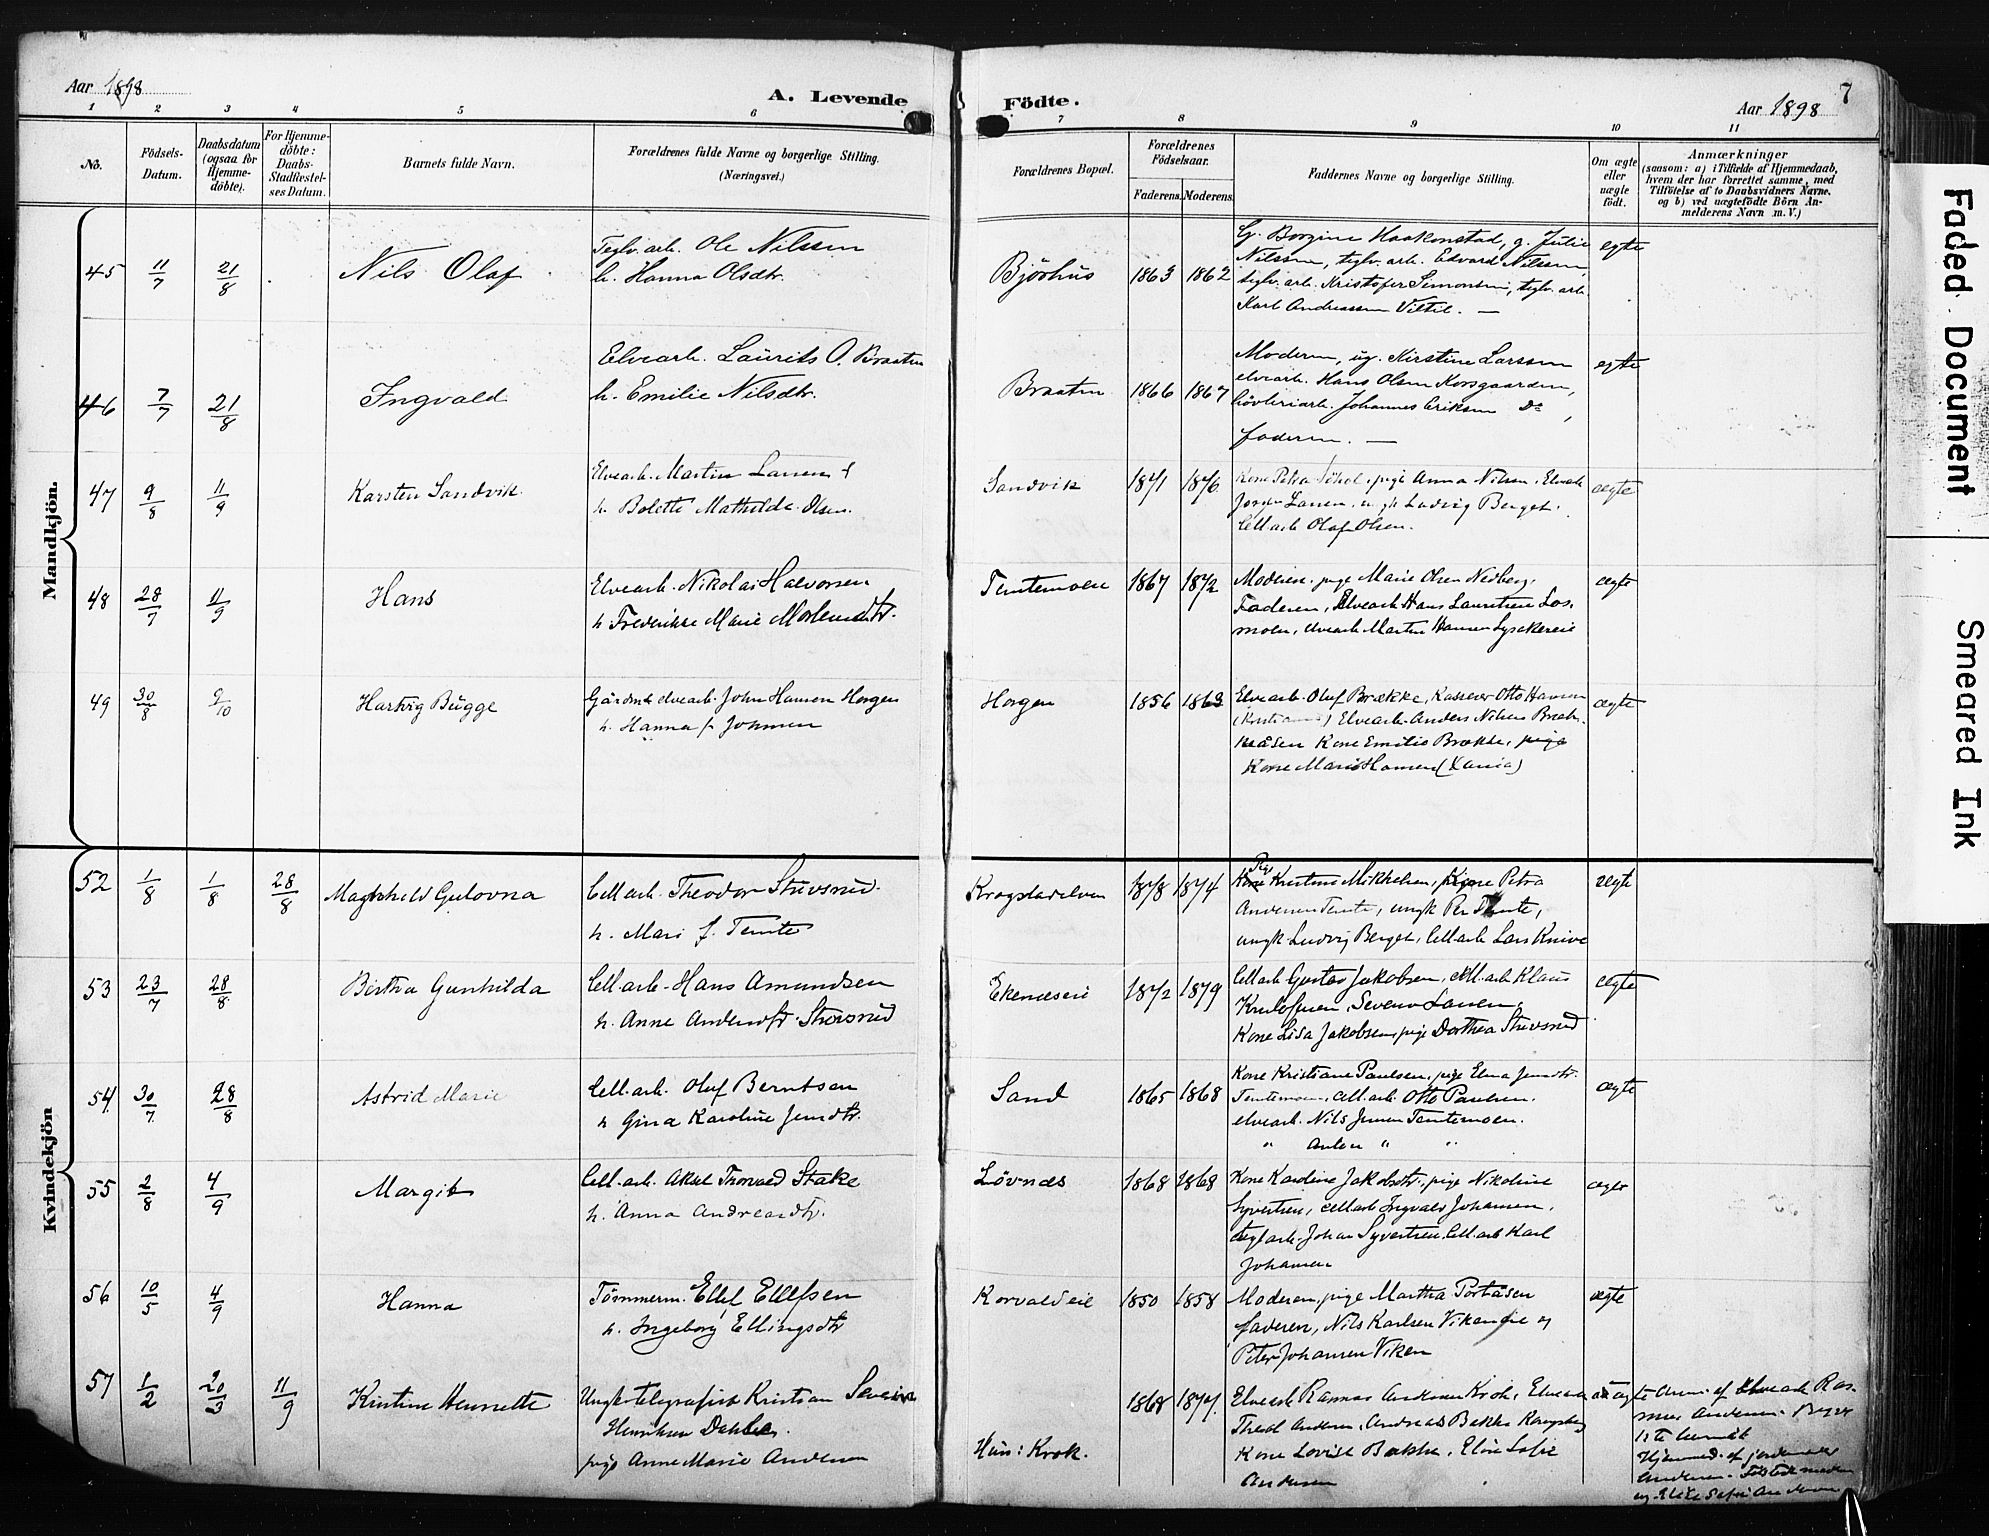 Aar 1898
A. Levende
Födte.
Aar 1898
7
1 2 3 4 5 6 7 8 9 10 11
No.
Födsels-
Datum.
Daabsdatum
(ogsaa for
Hjemme-
döbte).
For Hjemme-
döbte:
Daabs-
Stadfæstel-
ses Datum.
Barnets fulde Navn.
Forældrenes fulde Navne og borgerlige Stilling.
(Næringsvei.)
Forældrenes Bopæl.
Forældrenes
Födselsaar.
Faderens. Moderens.
Faddernes Navne og borgerlige Stilling.
Om ægte
eller
uægte
födt.
Anmærkninger
(saasom: a) i Tilfælde af Hjemmedaab,
hvem der har forrettet samme, med
Tilföielse af to Daabsvidners Navne,
og b) ved uægtefödte Börn An-
melderens Navn m. V.)
Mandkjön.
45 11/7 21/8
Nils Olaf
Teglv. arb. Ole Nilssen
h. Hanna Olsdtr.
Bjørhus
1863 1862
G. Borgine Haakonstad, g. Julie
Nilssen, teglv. arb. Edvard Nilssen,
teglv. arb. Kristofer Simonsen, teglv. arb.
Karl Andreassen Viltil. —
egte
46 7/7 21/8
Ingvald
Elvearb. Laurits O. Braaten
h. Emilie Nilsdtr.
Braaten
1866 1867
Moderen, ug. Kirstine Larssen
elvearb. Hans Olsen Korsgaarden,
høvleriarb. Johannes Eriksen Do,
faderen. —
egte
47 9/8 11/9
Karsten Sandvik
Elvearb. Martin Larsen &
h. Bolette Mathilde Olsen.
Sandvik
1871 1876
Kone Petra, pige Anna Nilsen, Elvearb
Larsen, Ludvig Berget,
Cell arb Olaf Olsen.
ægte
48 28/7 11/9
Hans
Elvearb. Nikolai Halvorsen
h Frederikke Marie Mortensdtr.
Temtemoen
1867 1872
Moderen, pige Marie Olsen Nedberg,
Faderen, Elvearb Hans Lauritsen Los-
moen, elvearb Martin Hansen Lysakereie
ægte
49 30/8 9/10
Hartvig Bugge
Gårdm & elvearb. John Hansen Horgen
h. Hanna f. Johnsen
Horgen
1856 1863
Elvearb. Oluf Brække, Kasserer Otto Hansen
(Kristiania) Elvearb. Anders Nilsen Bræk-
kåsen Kone Emilie Brække, pige
Kone Marie Hansen (Xania)
ægte
Kvindekjön
52 1/8 1/8 28/8
Magnhild Gulovna
Cell arb. Theodor Stuvsrud.
h. Mari f. Temte
Krogstadelven
1878 1874
Pige
Kone Kristine Mikkelsen, Kone Petra
Andersen Temte, ungk Per Temte,
ungk Ludvig Berget, Cell arb Lars Knive
ægte
53 23/7 28/8
Birtha Gunhilda
Cell. arb. Hans Amundsen
h. Anne Andersdtr Stuvsrud
Ekenæseie
1872 1879
Cell arb Gustav Jakobsen, Cell. arb Klaus
Knutsen, Severin Larsen,
Kone Lisa Jakobsen, pige Dorthea Stuvsrud
ægte
54. 30/7 28/8
Astrid Marie
Cell. arb. Oluf Berntsen
h Gina Karoline Jensdtr.
Sand
1865 1868
Kone Kristiane Paulsen, pige Elna Jensdtr.
Temtemoen, Cell arb Otto Paulsen.
elvearb. Nils Jensen Temtemoen.
" Anton " "
ægte
55 2/8 4/9
Margit
Cell. arb. Aksel Thorvald Stake
h. Anna Andreasdtr.
Løvnæs
1868 1868
Kone Karoline Jakobsdtr., pige Nikoline
Syvertsen, Cell arb Ingvald Johansen,
teglarb. Johan Syvertsen, Cell. arb Karl
Johansen
ægte
56 10/5 4/9
Hanna
Tømmerm. Ellef Ellefsen
h. Ingeborg Ellingsdtr
Korvaldeie
1850 1858
Moderen, pige Martha Portåsen
faderen, Nils Karlsen Vikeneie og
Peter Johansen Viken
ægte
57 1/2 20/3 11/9
Kristine Henriette
Ungk. telegrafist Kristian Severin
Henriksen Dahler.
pige Anne Marie Andersen
Hun: Krok.
1868 1877.
Elvearb Rasmus Andersen Krok, Elvearb
Theod. Andersen, Andreas Bakke Kongsberg
Kone Lovise Bakke, Elise Sofie
Andersen
uægte
Anm. af Elvearb Ras-
mus Andersen.
Hjemmed. af jordemoder
Andersen. Tilstede moderen
og Elise Sofie Andersen
Faded Document
Smeared Ink